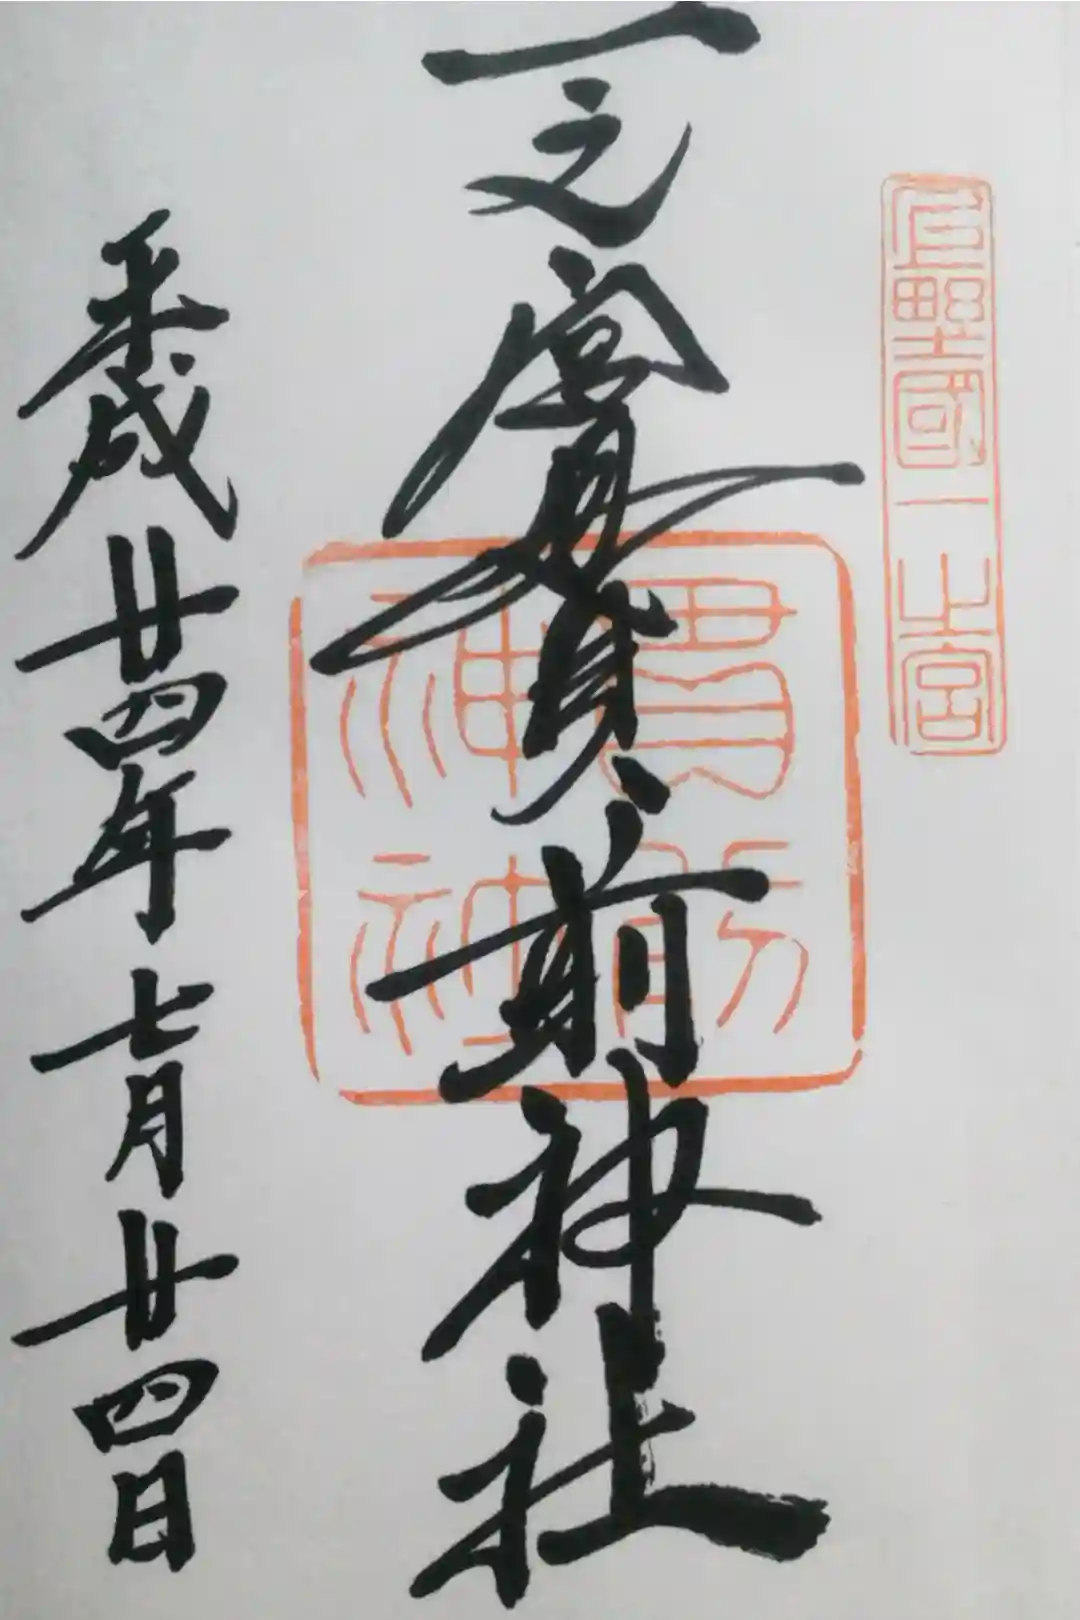 上野國一之宮
一之宮貫前神社
貫前
神社
平成廿四年七月廿四日